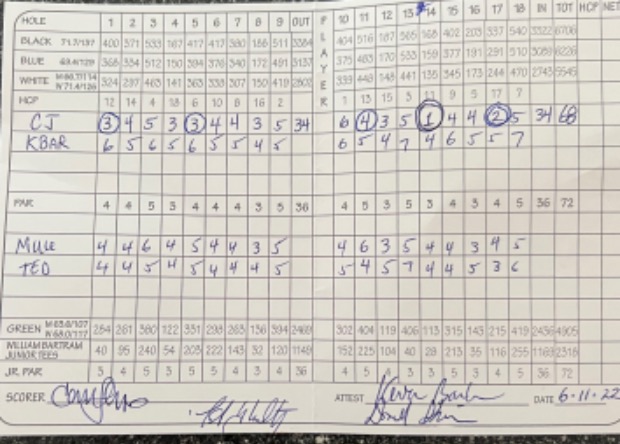 HOLE 1 2 3 4 5 6 7 8 9 OUT PLAYER 10 11 12 13 14 15 16 17 18 IN TOT HCP NET
BLACK 71.7/137 400 371 533 167 417 417 380 186 511 3384 404 516 187 565 168 402 203 337 540 3322 6706
BLUE 334 512 150 394 376 340 172 491 3137 375 483 170 533 159 377 191 291 510 3089 6226
WHITE 324 297 463 141 363 333 307 150 419 2802 339 448 148 441 135 345 173 244 470 2743 5545
HCP 12 14 4 18 6 10 8 16 2 1 13 15 3 11 9 5 17 7
CJ 3 4 5 3 3 4 4 3 5 34 6 4 3 5 1 4 4 2 5 34 68
KBAR 6 5 6 5 6 5 5 4 5 6 5 4 7 4 6 5 5 7
PAR 4 4 5 3 4 4 4 3 5 36 4 5 3 5 3 4 3 4 5 36 72
MULE 4 4 6 4 5 4 4 3 5 4 6 3 5 4 4 3 4 5
TED 4 4 5 4 5 4 4 4 5 5 4 5 7 4 4 5 3 6
GREEN 284 261 380 122 331 298 263 136 394 2469 302 404 119 406 113 315 143 215 419 2436 4905
WILLIAM BARTRAM JUNIOR TEES 40 95 240 54 203 222 143 32 120 1149 152 225 104 40 28 213 35 116 255 2318
JR. PAR 3 4 5 3 5 5 4 3 4 36 4 5 3 3 5 3 4 5 36 72
SCORER ATTEST DATE 6-11-22